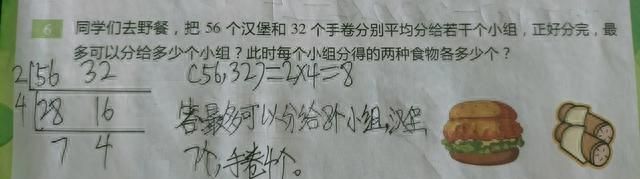 6 同学们去野餐，把 56 个汉堡和 32 个手卷分别平均分给若干个小组，正好分完，最
多可以分给多少个小组？此时每个小组分得的两种食物各多少个？
2 56 32 (56,32)=2×4=8
4 28 16 答:最多可以分给8个小组,汉堡
7 4 7个,手卷4个。